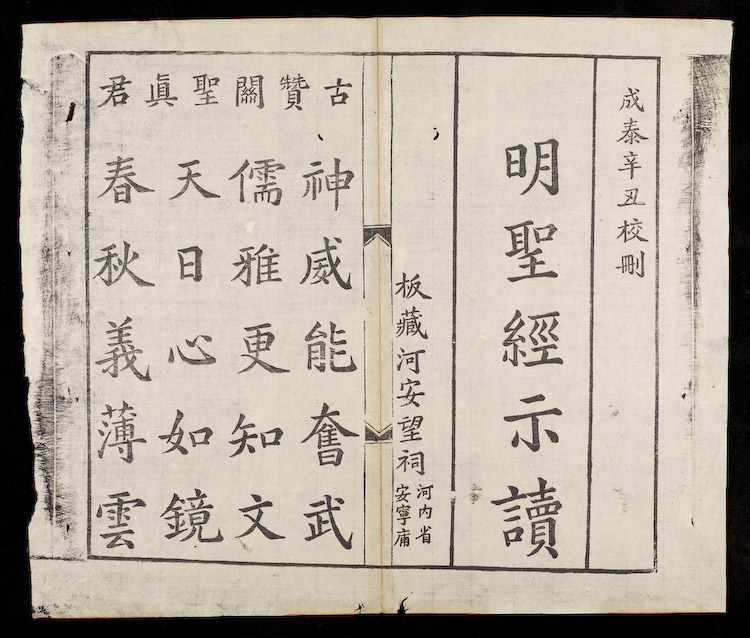 成泰辛丑校刪
明聖經示讀
板藏河安望祠
河內省
安寧庯
古贊關聖眞君
神威能奮武
儒雅更知文
天日心如鏡
春秋義薄雲